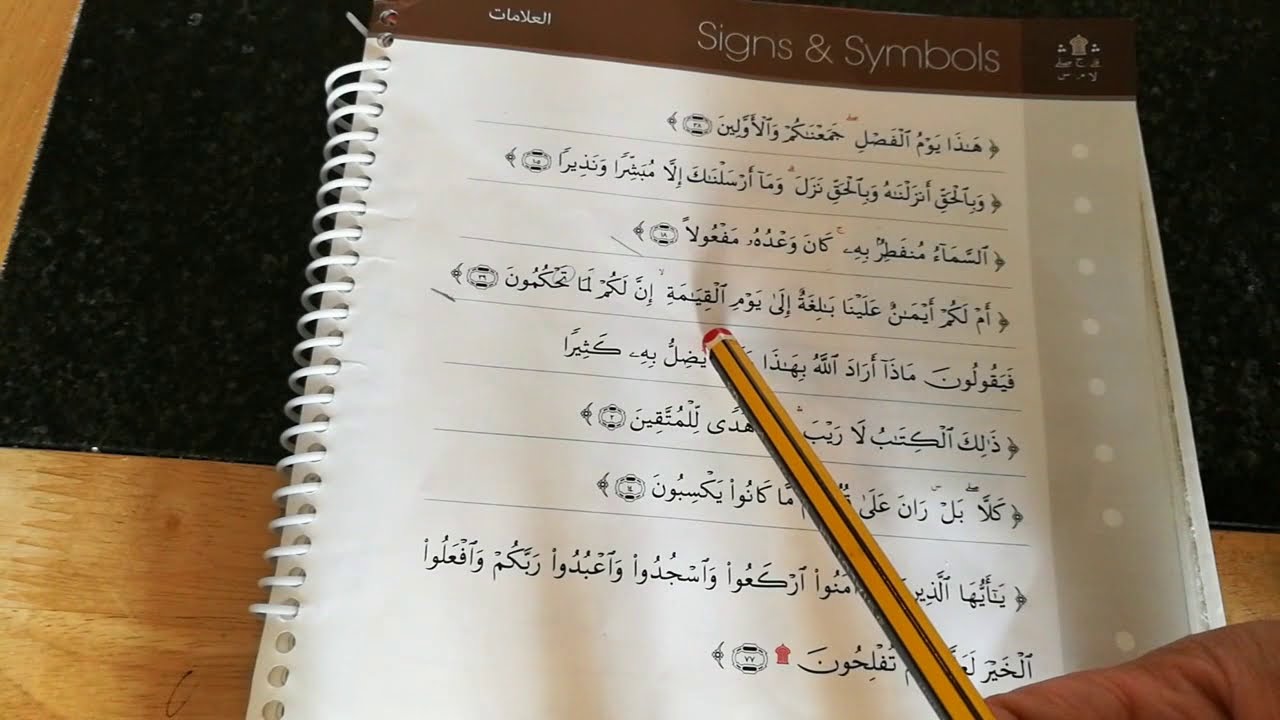 العلامات
Signs & Symbols
﴿ هَـٰذَا يَوْمُ ٱلْفَصْلِ ۖ جَمَعْنَـٰكُمْ وَٱلْأَوَّلِينَ ٣٨ ﴾
﴿ وَبِٱلْحَقِّ أَنزَلْنَـٰهُ وَبِٱلْحَقِّ نَزَلَ ۗ وَمَآ أَرْسَلْنَـٰكَ إِلَّا مُبَشِّرًا وَنَذِيرًا ١٠٥ ﴾
﴿ ٱلسَّمَآءُ مُنفَطِرٌۢ بِهِۦ ۚ كَانَ وَعْدُهُۥ مَفْعُولاً ١٨ ﴾
﴿ أَمْ لَكُمْ أَيْمَـٰنٌ عَلَيْنَا بَـٰلِغَةٌ إِلَىٰ يَوْمِ ٱلْقِيَـٰمَةِ ۙ إِنَّ لَكُمْ لَمَا تَحْكُمُونَ ٣٩ ﴾
فَيَقُولُونَ مَاذَآ أَرَادَ ٱللَّهُ بِهَـٰذَا يُضِلُّ بِهِۦ كَثِيرًا
﴿ ذَٰلِكَ ٱلْكِتَـٰبُ لَا رَيْبَ ۛ هُدًى لِّلْمُتَّقِينَ ٢ ﴾
﴿ كَلَّا ۖ بَلْ ۜ رَانَ عَلَىٰ مَّا كَانُوا۟ يَكْسِبُونَ ١٤ ﴾
﴿ يَـٰٓأَيُّهَا ٱلَّذِينَ ءَامَنُوا۟ ٱرْكَعُوا۟ وَٱسْجُدُوا۟ وَٱعْبُدُوا۟ رَبَّكُمْ وَٱفْعَلُوا۟
ٱلْخَيْرَ تُفْلِحُونَ ۩ ٧٧ ﴾